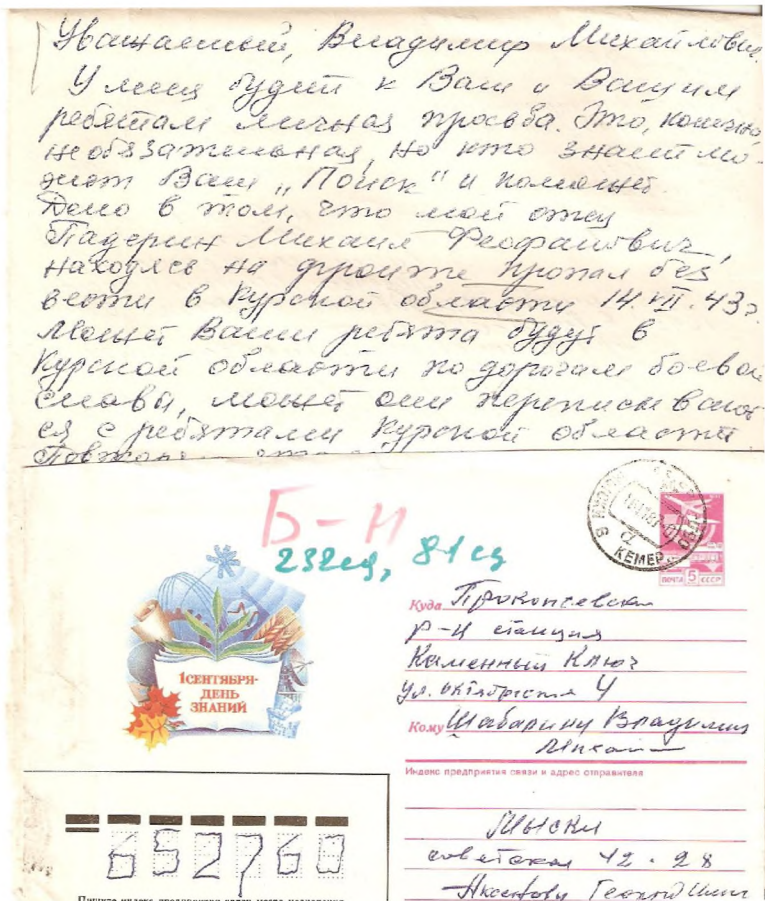 Уважаемый, Владимир Михайлович.
У меня будет к Вам и Вашим
ребятам личная просьба. Это, конечно,
необязательная, но кто знает мо-
жет Ваш „Поиск" и поможет.
Дело в том, что мой отец
Падерин Михаил Феофанович,
находясь на фронте пропал без
вести в Курской области 14.VII.43г.
Может Ваши ребята будут в
Курской области по дорогам боевой
славы, может они переписывают-
ся с ребятами Курской области.
Б-Н
232сд, 81сд
КЕМЕР
ПОЧТА 5 СССР
1 СЕНТЯБРЯ-
ДЕНЬ
ЗНАНИЙ
Куда Прокопьевский
р-н станция
Каменный Ключ
ул. Октябрьская 4
Кому Шабалину Владимир
Михай
Индекс предприятия связи и адрес отправителя
652760
Мыски
Советская 42-28
Пишите индекс предприятия связи места назначения